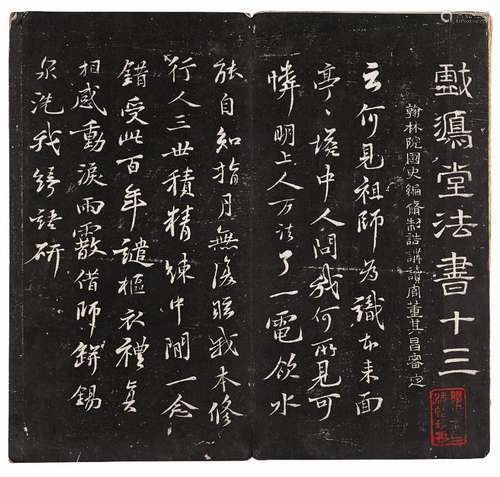 戲鴻堂法書十三
翰林院國史編脩制誥講讀官董其昌審定
云何見祖師要識本来面
亭〻塔中人問我何所見可
憐明上人万法了一電飲水
能自知指月無復眩我本修
行人三世積精練中間一念
錯受此百年譴摳衣禮真
相感動淚雨霰借師缾錫
泉洗我綺語研